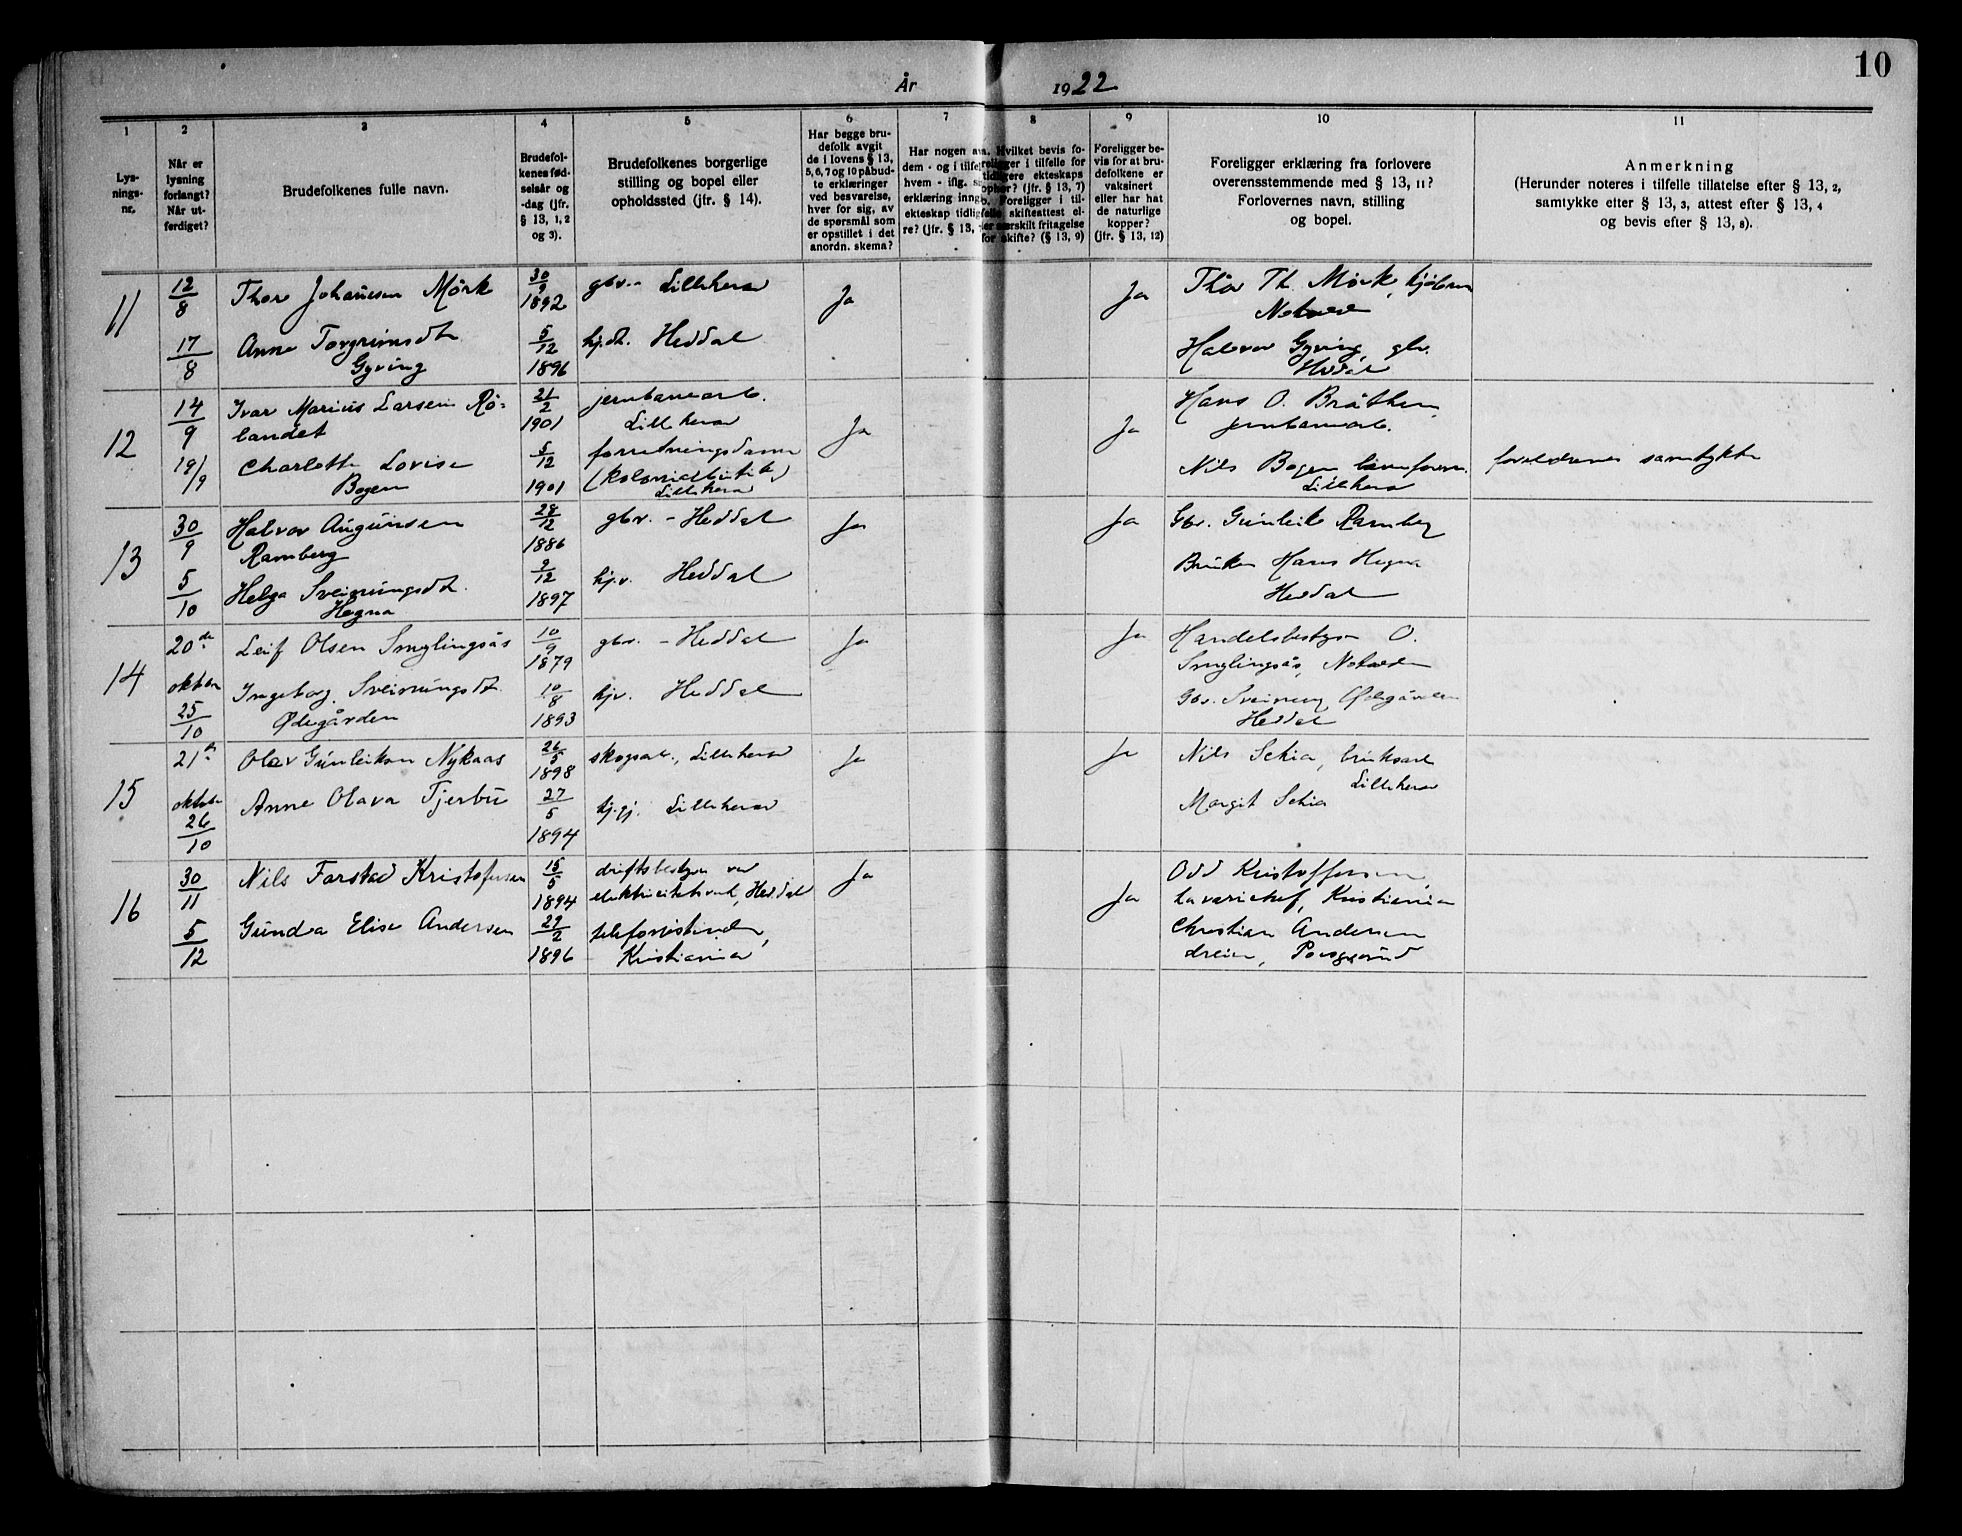 10
År 1922
1
2
3
4
5
6
7
8
9
10
11
Lys-
nings-
nr.
Når er
lysning
forlangt?
Når ut-
ferdiget?
Brudefolkenes fulle navn.
Brudefol-
kenes fød-
selsår og
-dag (jfr.
§ 13, 1, 2
og 3).
Brudefolkenes borgerlige
stilling og bopel eller
opholdssted (jfr. § 14).
Har begge bru-
defolk avgit
de i lovens § 13,
5, 6, 7 og 10 påbud-
te erklæringer
ved besvarelse,
hver for sig, av
de spørsmål som
er opstillet i det
anordn. skema?
Har nogen av
dem - og i tilfelle
hvem - iflg. s
erklæring inng
ekteskap tidlig
re? (jfr. § 13,
Hvilket bevis fo-
religger i tilfelle for
tidligere ekteskaps
ophør? (jfr. § 13, 7)
Foreligger i til-
felle skifteattest el-
ler særskilt fritagelse
for skifte? (§ 13, 9)
Foreligger be-
vis for at bru-
defolkene er
vaksinert
eller har hat
de naturlige
kopper?
(jfr. § 13, 12)
Foreligger erklæring fra forlovere
overensstemmende med § 13, 11?
Forlovernes navn, stilling
og bopel.
Anmerkning
(Herunder noteres i tilfelle tillatelse efter § 13, 2,
samtykke efter § 13, 3, attest efter § 13, 4
og bevis efter § 13, 8).
11
12/8
Thor Johannesen Mörk
30/9 1892
gbr. - Lilleherad
Ja
Ja
Thor Th. Mörk,
17/8
Anne Torgrimsdt.
Gyving
5/12 1896
hj.dt. Heddal
Halvor Gyving, gbr.
Heddal
12
14/9
Ivar Marius Larsen Rö-
landet
21/2 1901
jernbanearb.
Lilleherad
Ja
Ja
Hans O. Bråthen,
jernbanearb.
19/9
Charlotte Lovise
Bogen
5/12 1901
forretningsdame
(kolonialbutik)
Lilleherad
Nils Bogen,
Lilleherad
foreldrenes samtykke
13
30/9
Halvor Augunsen
Ramberg
28/12 1886
gbr. - Heddal
Ja
Ja
Gbr. Gunleik Ramberg
5/10
Helga Sveinungsdt.
Hogna
2/12 1897
hj.v. Heddal
Hans Hogna
Heddal
14
20de
oktober
Leif Olsen Smylingsås
10/9 1879
gbr. - Heddal
Ja
Ja
Handelsbestyrer O.
Smylingsås, Notodden
25/10
Ingeborg Sveinungsdt.
Ødegården
10/8 1893
hjv. Heddal
Gbr. Sveinung Ødegården
Heddal
15
21de
oktober
Olav Gunleiksen Nykaas
26/5 1898
skogsarb., Lilleherad
Ja
Ja
Nils Schia, bruksarb.
Lilleherad
26/10
Anne Olava Tjerbu
27/5 1894
hj.gj. Lilleherad
Margit Schia
16
30/11
Nils Farstad Kristofersen
15/5 1894
driftsbestyrer ved
elektricitetsverk, Heddal
Ja
Ja
Odd Kristoffersen,
Kristiania
5/12
Gunda Elise Andersen
29/2 1896
telefonistinde,
Kristiania
Christian Andersen
dreier, Porsgrund